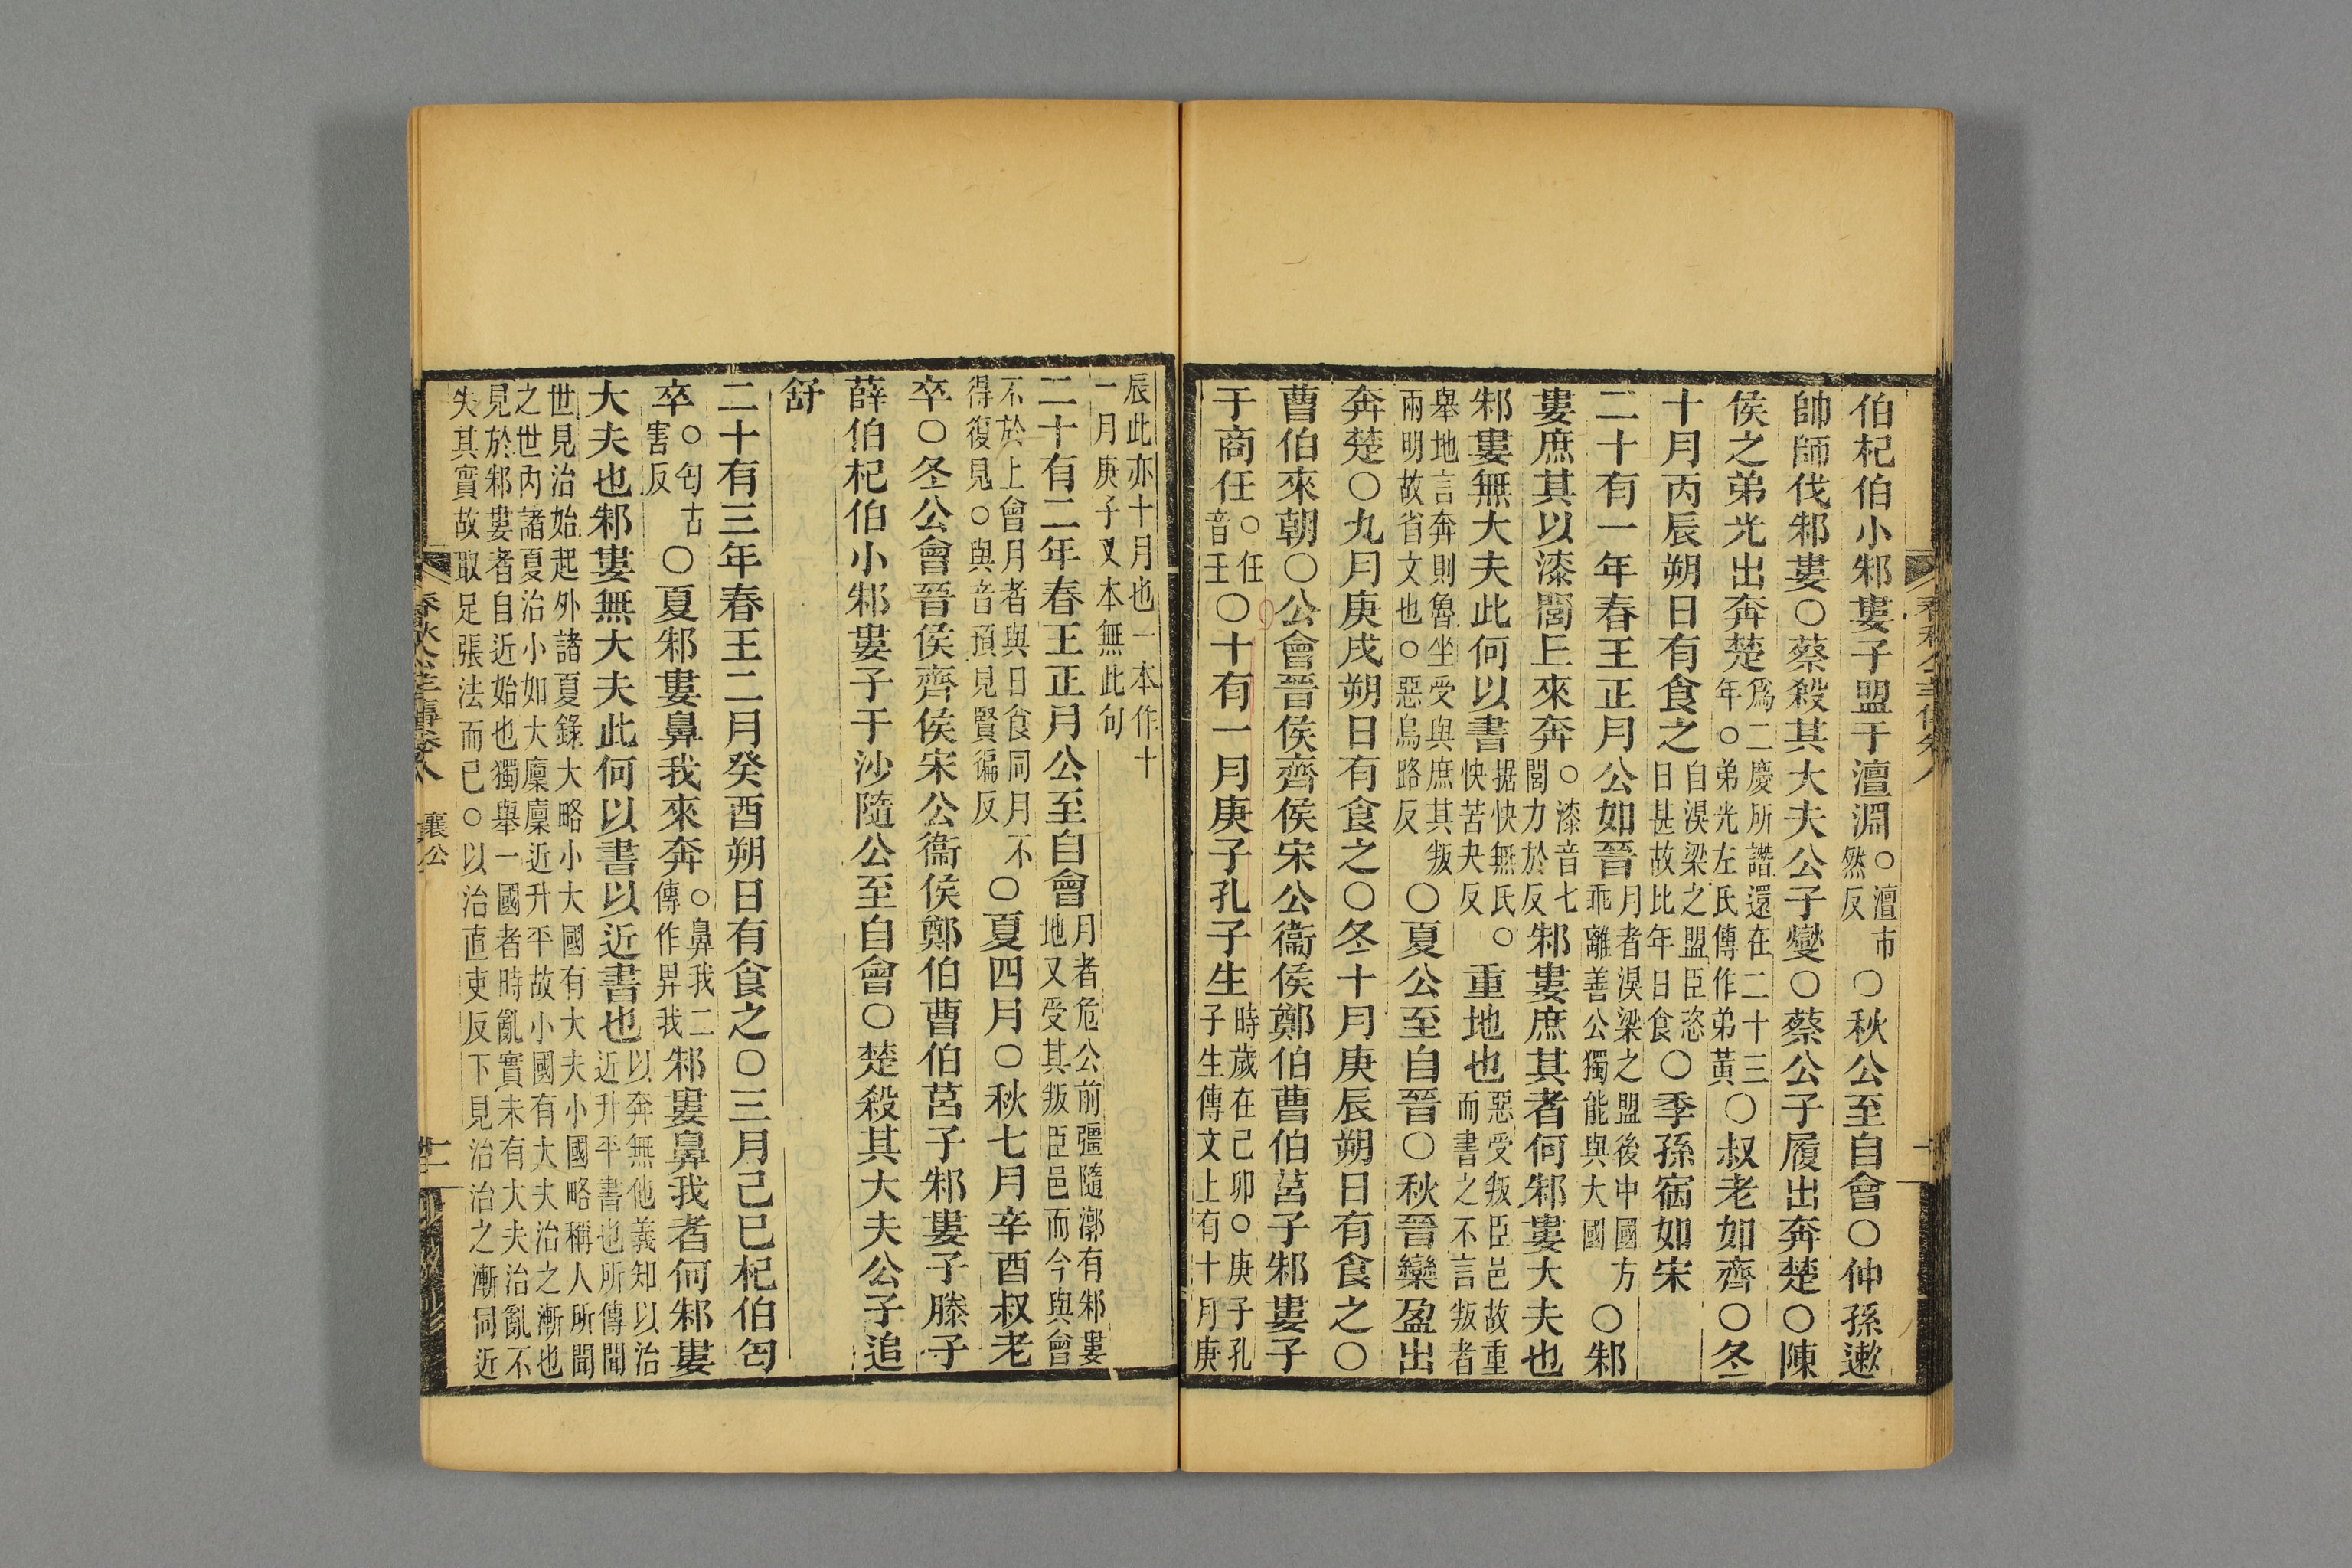 伯杞伯小邾婁子盟于澶淵○澶市然反○秋公至自會○仲孫遬
帥師伐邾婁○蔡殺其大夫公子燮○蔡公子履出奔楚○陳
侯之弟光出奔楚爲二慶所譖還在二十三年○弟光左氏傳作弟黃○叔老如齊○冬
十月丙辰朔日有食之自湨梁之盟臣恣日甚故比年日食○季孫宿如宋
二十有一年春王正月公如晉月者湨梁之盟後中國方乖離善公獨能與大國○邾
婁庶其以漆閭丘來奔○漆音七閭力於反邾婁庶其者何邾婁大夫也
邾婁無大夫此何以書据快無氏○快苦夬反重地也惡受叛臣邑故重而書之不言叛者
舉地言奔則魯坐受與庶其叛兩明故省文也○惡烏路反○夏公至自晉○秋晉欒盈出
奔楚○九月庚戌朔日有食之○冬十月庚辰朔日有食之○
曹伯來朝○公會晉侯齊侯宋公衞侯鄭伯曹伯莒子邾婁子
于商任○任音壬○十有一月庚子孔子生時歲在己卯○庚子孔子生傳文上有十月庚
辰此亦十月也一本作十一月庚子又本無此句
二十有二年春王正月公至自會月者危公前疆隨漷有邾婁地又受其叛臣邑而今與會
不於上會月者與日食同月不得復見○與音預見賢徧反○夏四月○秋七月辛酉叔老
卒○冬公會晉侯齊侯宋公衞侯鄭伯曹伯莒子邾婁子滕子
薛伯杞伯小邾婁子于沙隨公至自會○楚殺其大夫公子追
舒
二十有三年春王二月癸酉朔日有食之○三月己巳杞伯匄
卒○匄古害反○夏邾婁鼻我來奔○鼻我二傳作畀我邾婁鼻我者何邾婁
大夫也邾婁無大夫此何以書以近書也以奔無他義知以治近升平書也所傳聞
世見治始起外諸夏錄大略小大國有大夫小國略稱人所聞之世內諸夏治小如大廩廩近升平故小國有大夫治之漸也
見於邾婁者自近始也獨舉一國者時亂實未有大夫治亂不失其實故取足張法而已○以治直吏反下見治治之漸同近
春秋公羊傳卷八
襄公